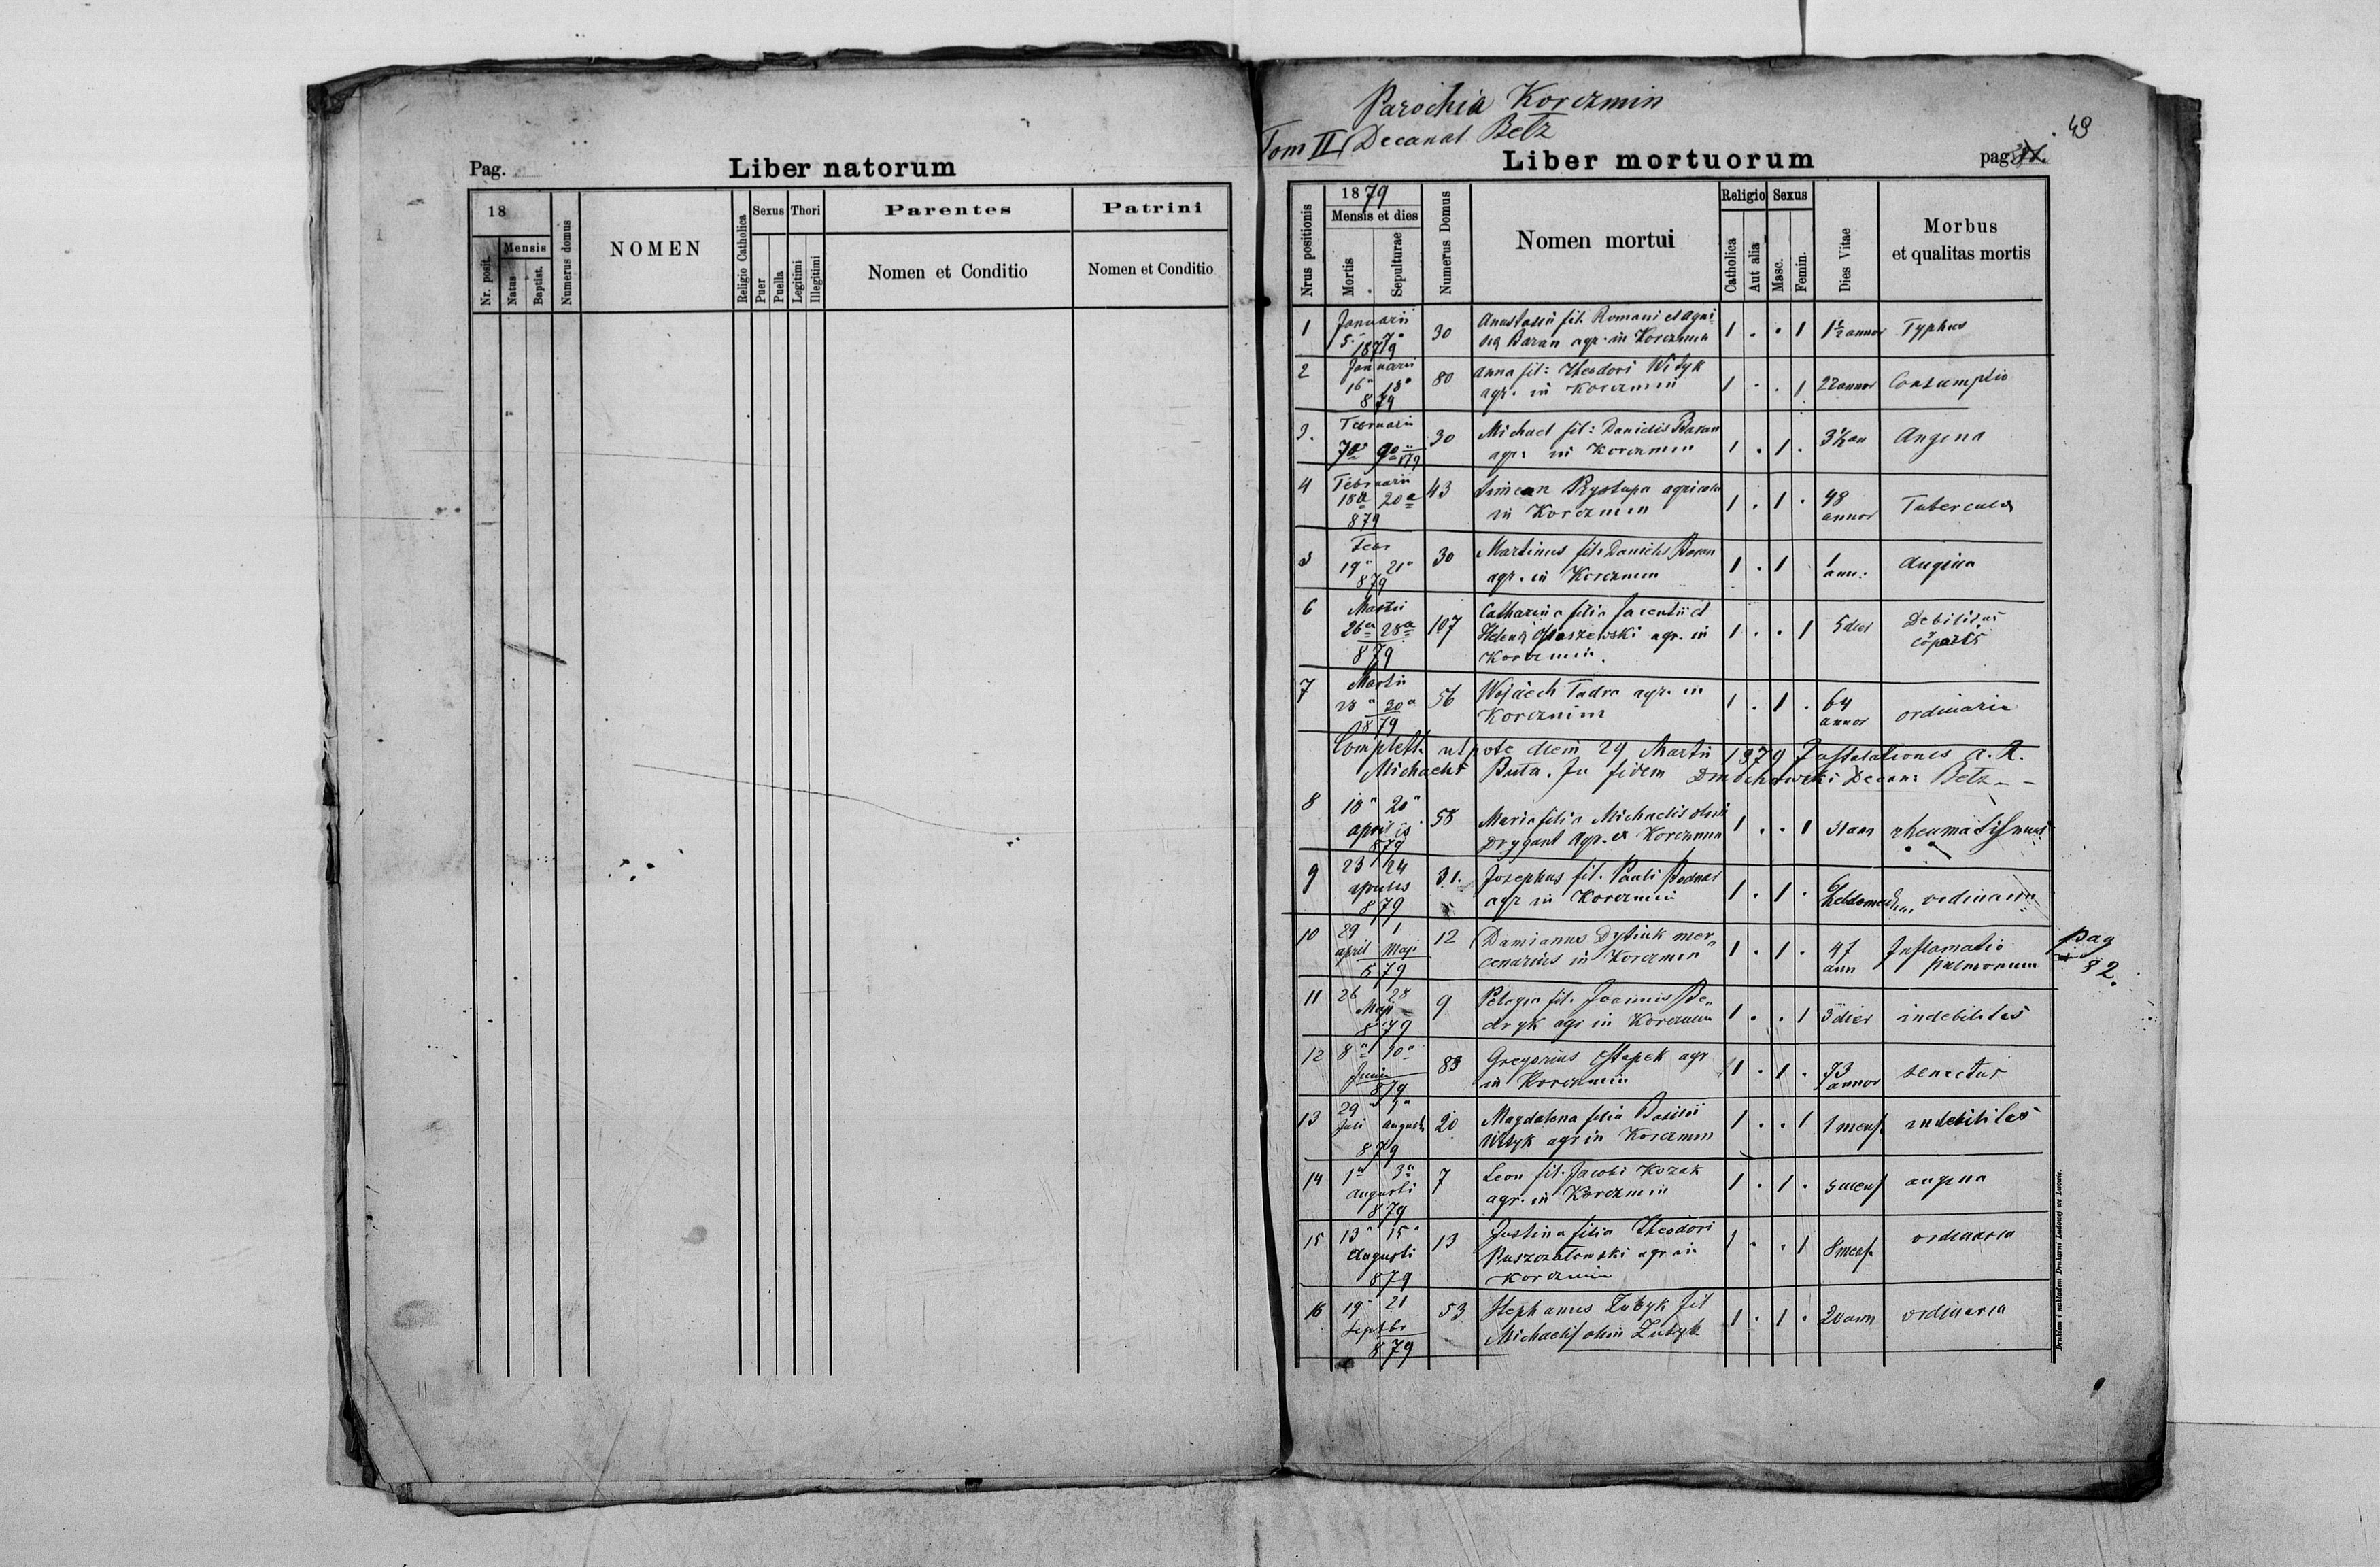 Pag.
Liber natorum
18
Mensis
Nr. posit.
Natus
Baptist.
Numerus domus
NOMEN
Religio Catholica
Sexus
Puer
Puella
Thori
Legitimi
Illegitimi
Parentes
Nomen et Conditio
Patrini
Nomen et Conditio
Parochia Korczmin
Tom II Decanat Betz
49
Liber mortuorum
pag.
Nrus positionis
1879
Mensis et dies
Mortis
Sepulturae
Numerus Domus
Nomen mortui
Religio
Catholica
Aut alia
Sexus
Masc.
Femin.
Dies Vitae
Morbus
et qualitas mortis
1 Januarii 30 fil. Romani et Agni 1 . . 1 1½ annor Typhus
5 7
1879 Baran agr. in Korczmin
2 Januarii 80 Anna fil: Theodori Wityk 1 . . 1 22 annor Consumptio
16 18 agr. in Korczmin
879
3. Februarii 30 Michael fil: Danielis Baran 1 . 1 . 3½ an Angina
7a 9a 879 agr: in Korczmin
4 Februarii 43 Simeon Prystupa agricola 1 . 1 . 48 annor
18a 20a in Korczmin
879
5 Febr 30 Martinus fil. Danielis Baran 1 . 1 1 ann: angina
19 21 agr. in Korczmin
879
6 Martii 107 Catharina filia Jacentii et 1 . . 1 5 dies Debilitas
26a 28a agr. in cōporis
879 Korczmin.
7 Martii 56 Wojciech Tadra agr. in 1 . 1 . 64 annor ordinaria
28 30a Korczmin
1879
utpote diem 29 Martii 1879
Michaelis Buta. In fidem Decan: Betz
8 18 20 58 Maria filia Michaelis olim 1 . . 1 31 ann rheumatismus
aprilis Drygant agr. ex Korczmin
879
9 23 24 31. Josephus fil. Pauli Bodnar 1 . 1 . 6 ordinaria
aprilis agr in Korczmin
879
10 29 1 12 Damianus Dytiuk mer„ 1 . 1 . 47 ann Inflamatio
april Maji cenarius in Korczmin pulmonum
879
pag
82.
11 26 28 9 Pelagia fil. Joannis Be„ 1 . . 1 3 dies indebilitas
Maji dryk agr in Korczmin
879
12 8 10 83 Gregorius Ostapek agr 1 . 1 . 73 annor senectus
Junii in Korczmin
879
13 29 1 20 Magdalena filia Basilii 1 . . 1 1 mens indebilitas
Juli augusti Wityk agr in Korczmin
879
14 1a 3a 7 Leon fil. Jacobi Kozak 1 . 1 . 5 mens angina
augusti agr. in Korczmin
879
15 13 15 13 Justina filia Theodori 1 . . 1 8 mens ordinaria
Augusti agr in
879 Korczmin
16 19 21 53 Stephanus Zubyk fil 1 . 1 . 20 ann ordinaria
Septbr Michaelis olim Zubyk
879
Drukiem i nakładem Drukarni Ludowej we Lwowie.